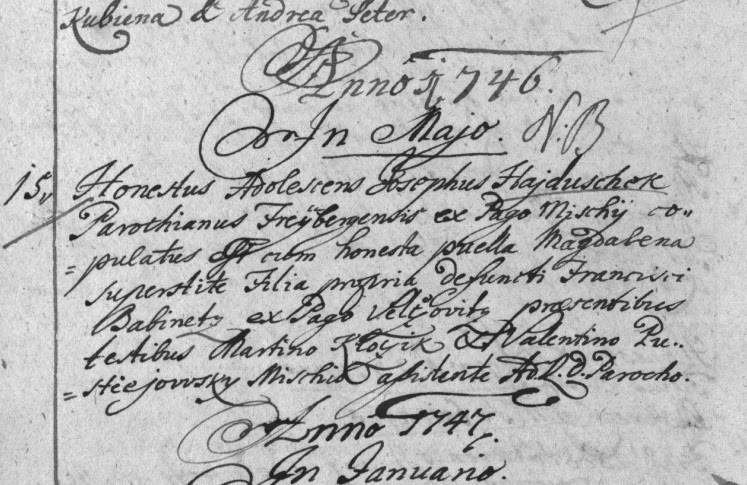 Kubiena & Andrea Peter.
Anno 1746.
In Majo. N:B
15, Honestus Adolescens Josephus Hajduschek
Parochianus Freÿbergensis ex Pago Mischij co„
=pulatus est cum honesta puella Magdalena
superstite Filia propria defuncti Francisci
Babinetz ex Pago Veltčovitz præsentibus
testibus Martino & Valentino Pu„
=stiejovvsky assistente Ad. R. D. Parocho.
Anno 1747.
In Januario.